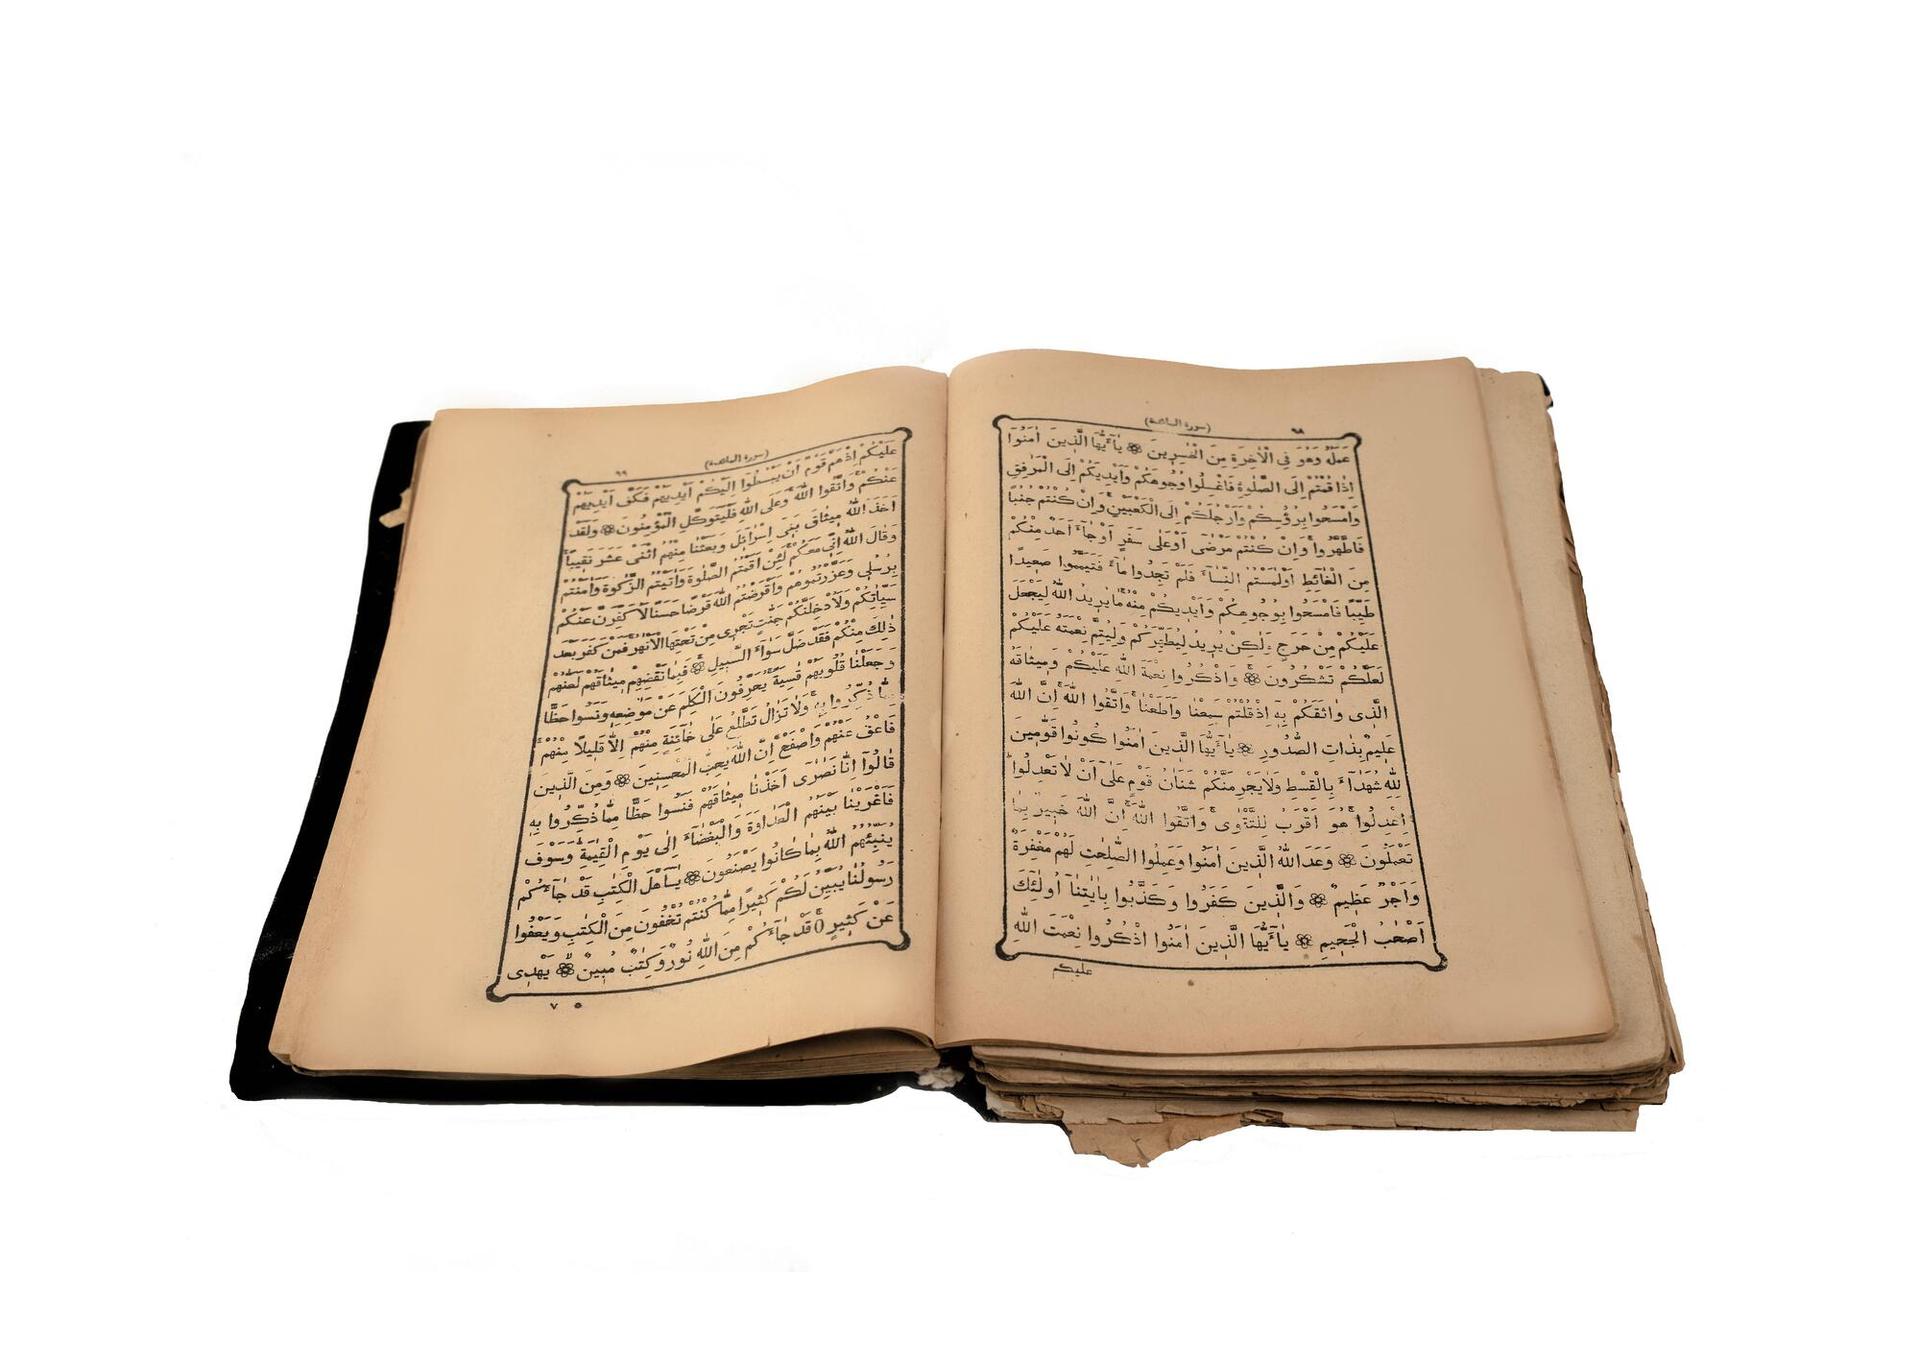 ٦٨
(سورة المائدة)
عَمَلُهُ وَهُوَ فِي الْاٰخِرَةِ مِنَ الْخٰسِرِينَ ۞ يَاۤاَيُّهَا الَّذِينَ اٰمَنُوٓا
اِذَا قُمْتُمْ اِلَى الصَّلٰوةِ فَاغْسِلُوا وُجُوهَكُمْ وَاَيْدِيَكُمْ اِلَى الْمَرَافِقِ
وَامْسَحُوا بِرُؤُسِكُمْ وَاَرْجُلَكُمْ اِلَى الْكَعْبَيْنِ وَاِنْ كُنْتُمْ جُنُباً
فَاطَّهَّرُوا وَاِنْ كُنْتُمْ مَرْضٰٓى اَوْ عَلٰى سَفَرٍ اَوْجَآءَ اَحَدٌ مِنْكُمْ
مِنَ الْغَآئِطِ اَوْلٰمَسْتُمُ النِّسَآءَ فَلَمْ تَجِدُوا مَآءً فَتَيَمَّمُوا صَعِيدًا
طَيِّبًا فَامْسَحُوا بِوُجُوهِكُمْ وَاَيْدِيكُمْ مِنْهُ مَا يُرِيدُ اللّٰهُ لِيَجْعَلَ
عَلَيْكُمْ مِنْ حَرَجٍ وَلٰكِنْ يُرِيدُ لِيُطَهِّرَكُمْ وَلِيُتِمَّ نِعْمَتَهُ عَلَيْكُمْ
لَعَلَّكُمْ تَشْكُرُونَ ۞ وَاذْكُرُوا نِعْمَةَ اللّٰهِ عَلَيْكُمْ وَمِيثَاقَهُ
الَّذِى وَاثَقَكُمْ بِهٖٓ اِذْقُلْتُمْ سَمِعْنَا وَاَطَعْنَا وَاتَّقُوا اللّٰهَ اِنَّ اللّٰهَ
عَلِيمٌ بِذَاتِ الصُّدُورِ ۞ يَاۤاَيُّهَا الَّذِينَ اٰمَنُوا كُونُوا قَوَّامِينَ
لِلّٰهِ شُهَدَآءَ بِالْقِسْطِ وَلَا يَجْرِمَنَّكُمْ شَنَاٰنُ قَوْمٍ عَلٰٓى اَنْ لَا تَعْدِلُوا
اِعْدِلُوا هُوَ اَقْرَبُ لِلتَّقْوٰى وَاتَّقُوا اللّٰهَ اِنَّ اللّٰهَ خَبِيرٌ بِمَا
تَعْمَلُونَ ۞ وَعَدَ اللّٰهُ الَّذِينَ اٰمَنُوا وَعَمِلُوا الصَّالِحَاتِ لَهُمْ مَغْفِرَةٌ
وَاَجْرٌ عَظِيمٌ ۞ وَالَّذِينَ كَفَرُوا وَكَذَّبُوا بِاٰيَاتِنَآ اُولٰٓئِكَ
اَصْحٰبُ الْجَحِيمِ ۞ يَاۤاَيُّهَا الَّذِينَ اٰمَنُوا اذْكُرُوا نِعْمَتَ اللّٰهِ
عليكم
(سورة المائدة)
٦٩
عَلَيْكُمْ اِذْهَمَّ قَوْمٌ اَنْ يَبْسُطُوٓا اِلَيْكُمْ اَيْدِيَهُمْ فَكَفَّ اَيْدِيَهُمْ
عَنْكُمْ وَاتَّقُوا اللّٰهَ وَعَلَى اللّٰهِ فَلْيَتَوَكَّلِ الْمُؤْمِنُونَ ۞ وَلَقَدْ
اَخَذَ اللّٰهُ مِيثَاقَ بَنِىٓ اِسْرَآئِلَ وَبَعَثْنَا مِنْهُمُ اثْنَىْ عَشَرَ نَقِيبًا
وَقَالَ اللّٰهُ اِنِّى مَعَكُمْ لَئِنْ اَقَمْتُمُ الصَّلٰوةَ وَاٰتَيْتُمُ الزَّكٰوةَ وَاٰمَنْتُمْ
بِرُسُلِى وَعَزَّرْتُمُوهُمْ وَاَقْرَضْتُمُ اللّٰهَ قَرْضًا حَسَنًا لَاُكَفِّرَنَّ عَنْكُمْ
سَيِّاٰتِكُمْ وَلَاُدْخِلَنَّكُمْ جَنَّاتٍ تَجْرِى مِنْ تَحْتِهَا الْاَنْهٰرُ فَمَنْ كَفَرَ بَعْدَ
ذٰلِكَ مِنْكُمْ فَقَدْ ضَلَّ سَوَآءَ السَّبِيلِ ۞ فَبِمَا نَقْضِهِمْ مِيثَاقَهُمْ لَعَنّٰهُمْ
وَجَعَلْنَا قُلُوبَهُمْ قٰسِيَةً يُحَرِّفُونَ الْكَلِمَ عَنْ مَوَاضِعِهِ وَنَسُوا حَظًّا
مِمَّا ذُكِّرُوا بِهِ وَلَا تَزَالُ تَطَّلِعُ عَلٰى خَآئِنَةٍ مِنْهُمْ اِلَّا قَلِيلًا مِنْهُمْ
فَاعْفُ عَنْهُمْ وَاصْفَحْ اِنَّ اللّٰهَ يُحِبُّ الْمُحْسِنِينَ ۞ وَمِنَ الَّذِينَ
قَالُوٓا اِنَّا نَصَارٰٓى اَخَذْنَا مِيثَاقَهُمْ فَنَسُوا حَظًّا مِمَّا ذُكِّرُوا بِهِ
فَاَغْرَيْنَا بَيْنَهُمُ الْعَدَاوَةَ وَالْبَغْضَآءَ اِلٰى يَوْمِ الْقِيٰمَةِ وَسَوْفَ
يُنَبِّئُهُمُ اللّٰهُ بِمَا كَانُوا يَصْنَعُونَ ۞ يَآ اَهْلَ الْكِتٰبِ قَدْ جَآءَكُمْ
رَسُولُنَا يُبَيِّنُ لَكُمْ كَثِيرًا مِمَّا كُنْتُمْ تُخْفُونَ مِنَ الْكِتٰبِ وَيَعْفُوا
عَنْ كَثِيرٍ ۞ قَدْ جَآءَكُمْ مِنَ اللّٰهِ نُورٌ وَكِتٰبٌ مُبِينٌ ۞ يَهْدِى
٧ ٥